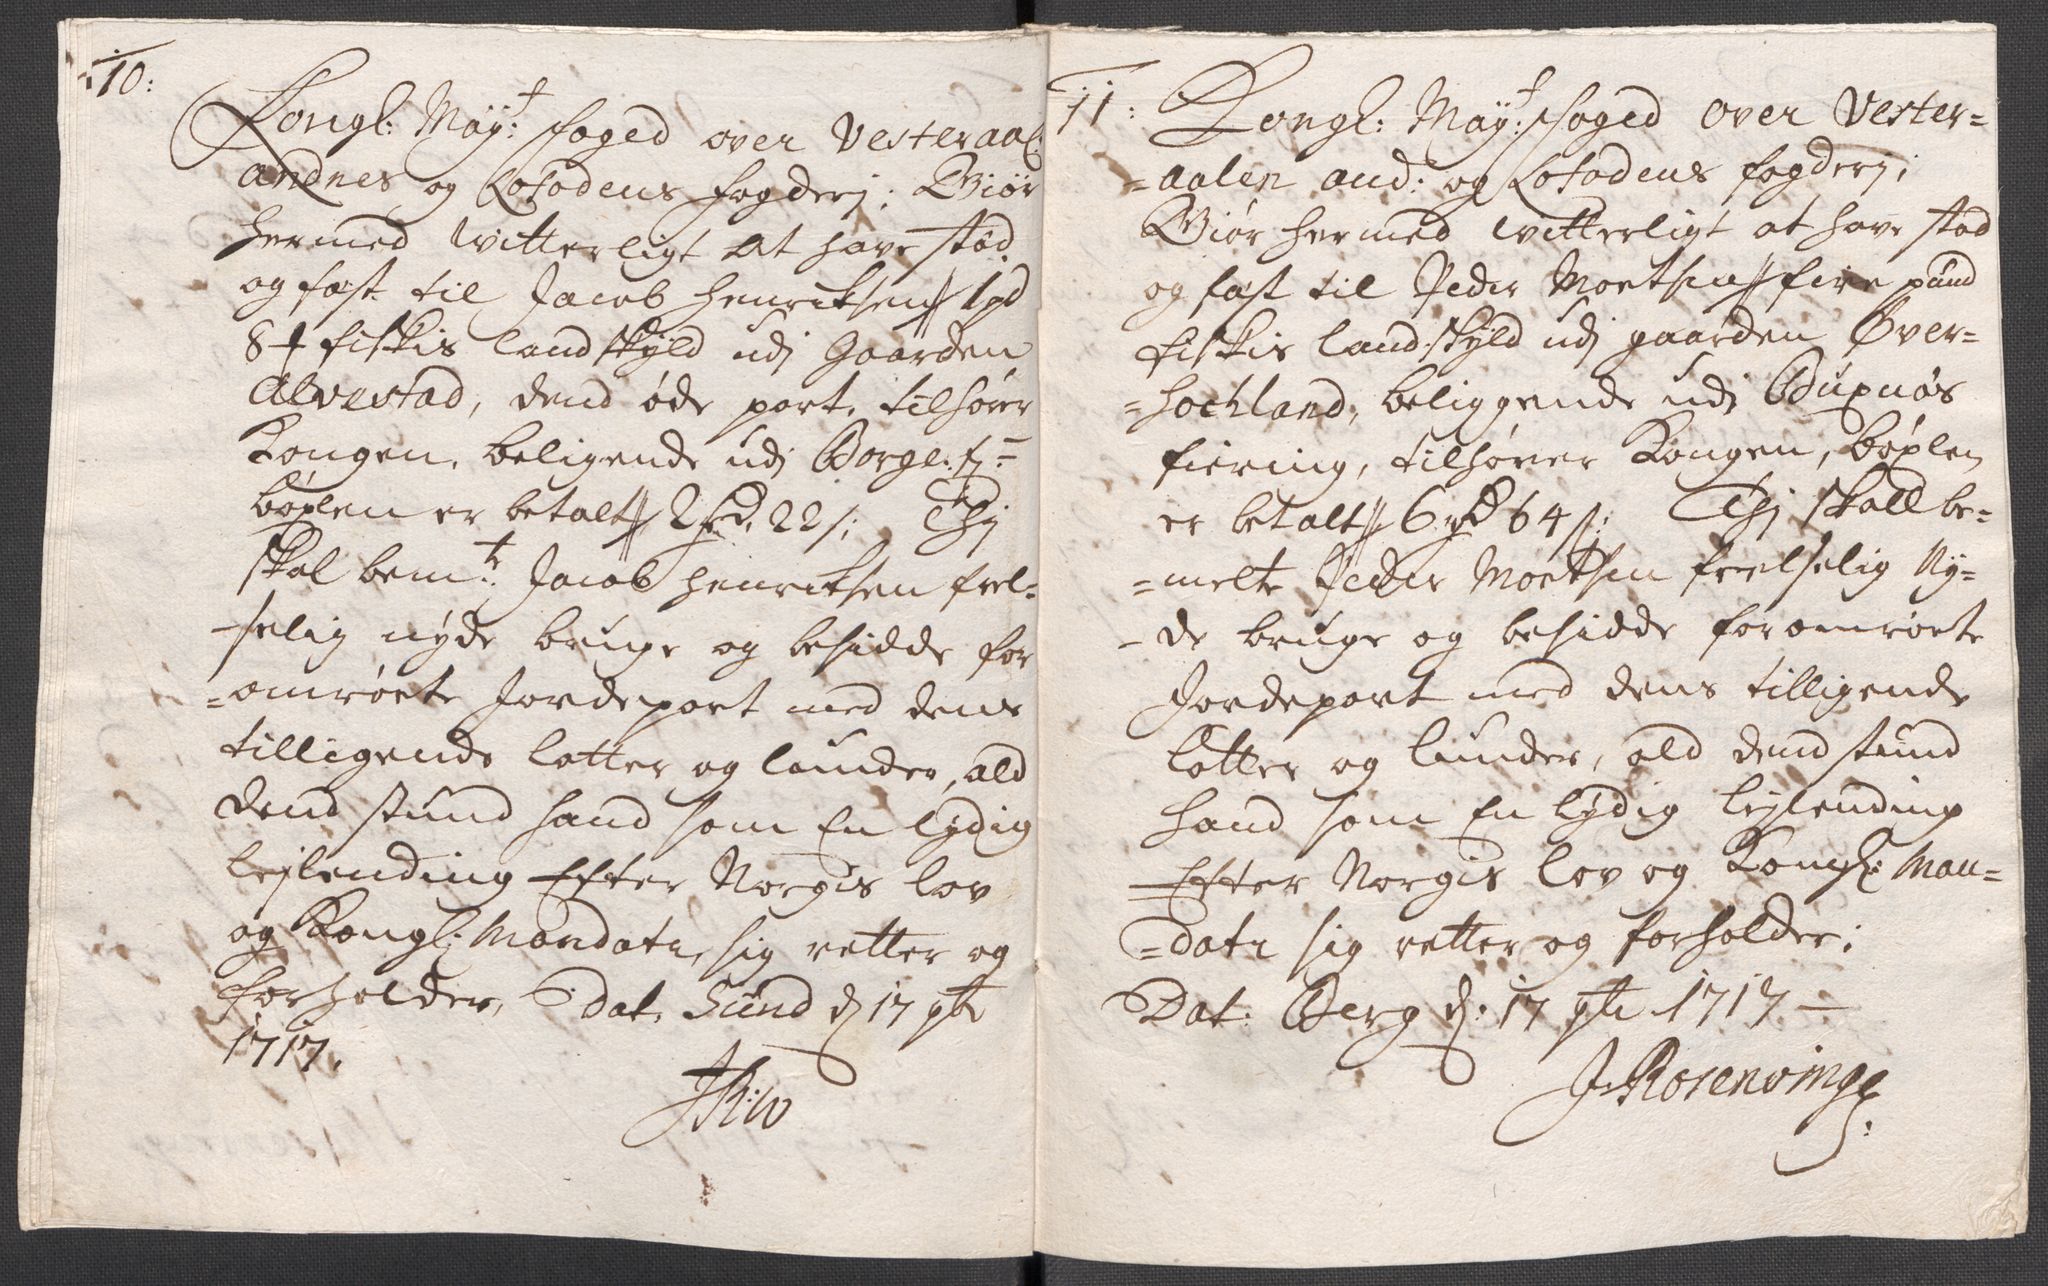 10:
Kongl: May:t foged over Vesteraal:
Andnes og Lofodens fogderj; Giør
hermed Witterligt At have stæd
og fæst til Jacob Henriksen // 1 pd
8 # fiskis Landskyld udj Gaarden
Alvestad, dend øde part, tilhører
Kongen, beligende udj Borge: fj:=
bøxlen er betalt // 2 22 s: Thj
skal bem:te Jacob Henriksen frel-
-selig nyde bruge og besidde for
=omrørte Jordepart med dens
tilligende Lotter og Lunder, ald
dend stund hand som En lydig
Lejlending Efter Norgis Lov
og Kongl: Mandater, sig retter og
forholder, Dat, Sund d 17
1717.
JRW
11:
Kongl: May:t foged over Vester=
=aalen And: og Lofodens fogderj;
Giør hermed Witterligt at have stæd
og fæst til Peder Moetsen // fire pund
fiskis Land.skyld udj gaarden Over=
=hochland, beliggende udj Buxnøs
fiering, tilhører Kongen, bøxlen
er betalt // 6 64 s: Thj skall be=
=melte Peder Moetsen freelselig Ny=
-de bruge og besidde foromrørte
Jordepart med dens tilligende
Lotter og Lunder, ald dend stund
hand som En lydig Lejlending
Efter Norgis Lov og Kongl: Man=
=data sig retter og forholder;
Dat: Berg d: 17 1717 —
J. Rosenvinge